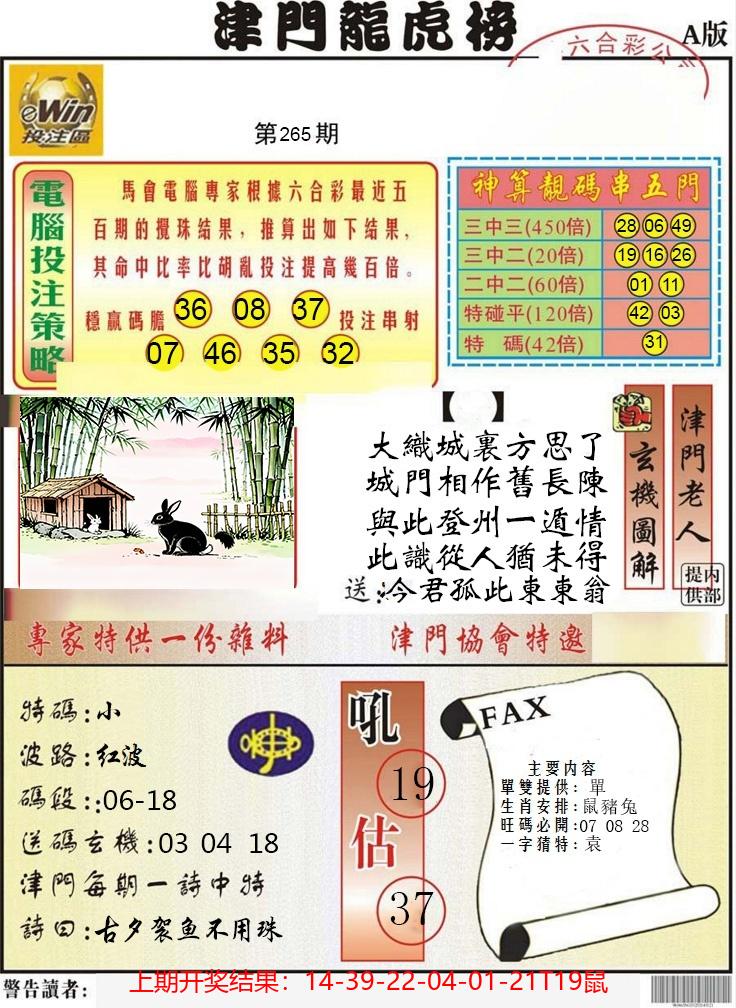 津門龍虎榜
A版
六合彩公
eWin
投注區
第265期
電腦投注策略
馬會電腦專家根據六合彩最近五
百期的攪珠结果，推算出如下结果，
其命中比率比胡亂投注提高幾百倍。
穩赢碼膽 36 08 37 投注串射
07 46 35 32
神算靚碼串五門
三中三(450倍) 28 06 49
三中二(20倍) 19 16 26
二中二(60倍) 01 11
特碰平(120倍) 42 03
特 碼(42倍) 31
【 】
大織城裏方思了
城門相作舊長陳
與此登州一遁情
此識從人猶未得
送:今君孤此東東翁
玄機圖解
津門老人
内部提供
專家特供一份雜料
津門協會特邀
特碼:小
波路:红波
碼段::06-18
送碼玄機:03 04 18
津門每期一詩中特
詩曰:古夕袈鱼不用珠
吼
19
估
37
FAX
主要内容
單雙提供: 單
生肖安排:鼠豬兔
旺码必開:07 08 28
一字猜特: 袁
警告讀者:
上期开奖结果：14-39-22-04-01-21T19鼠